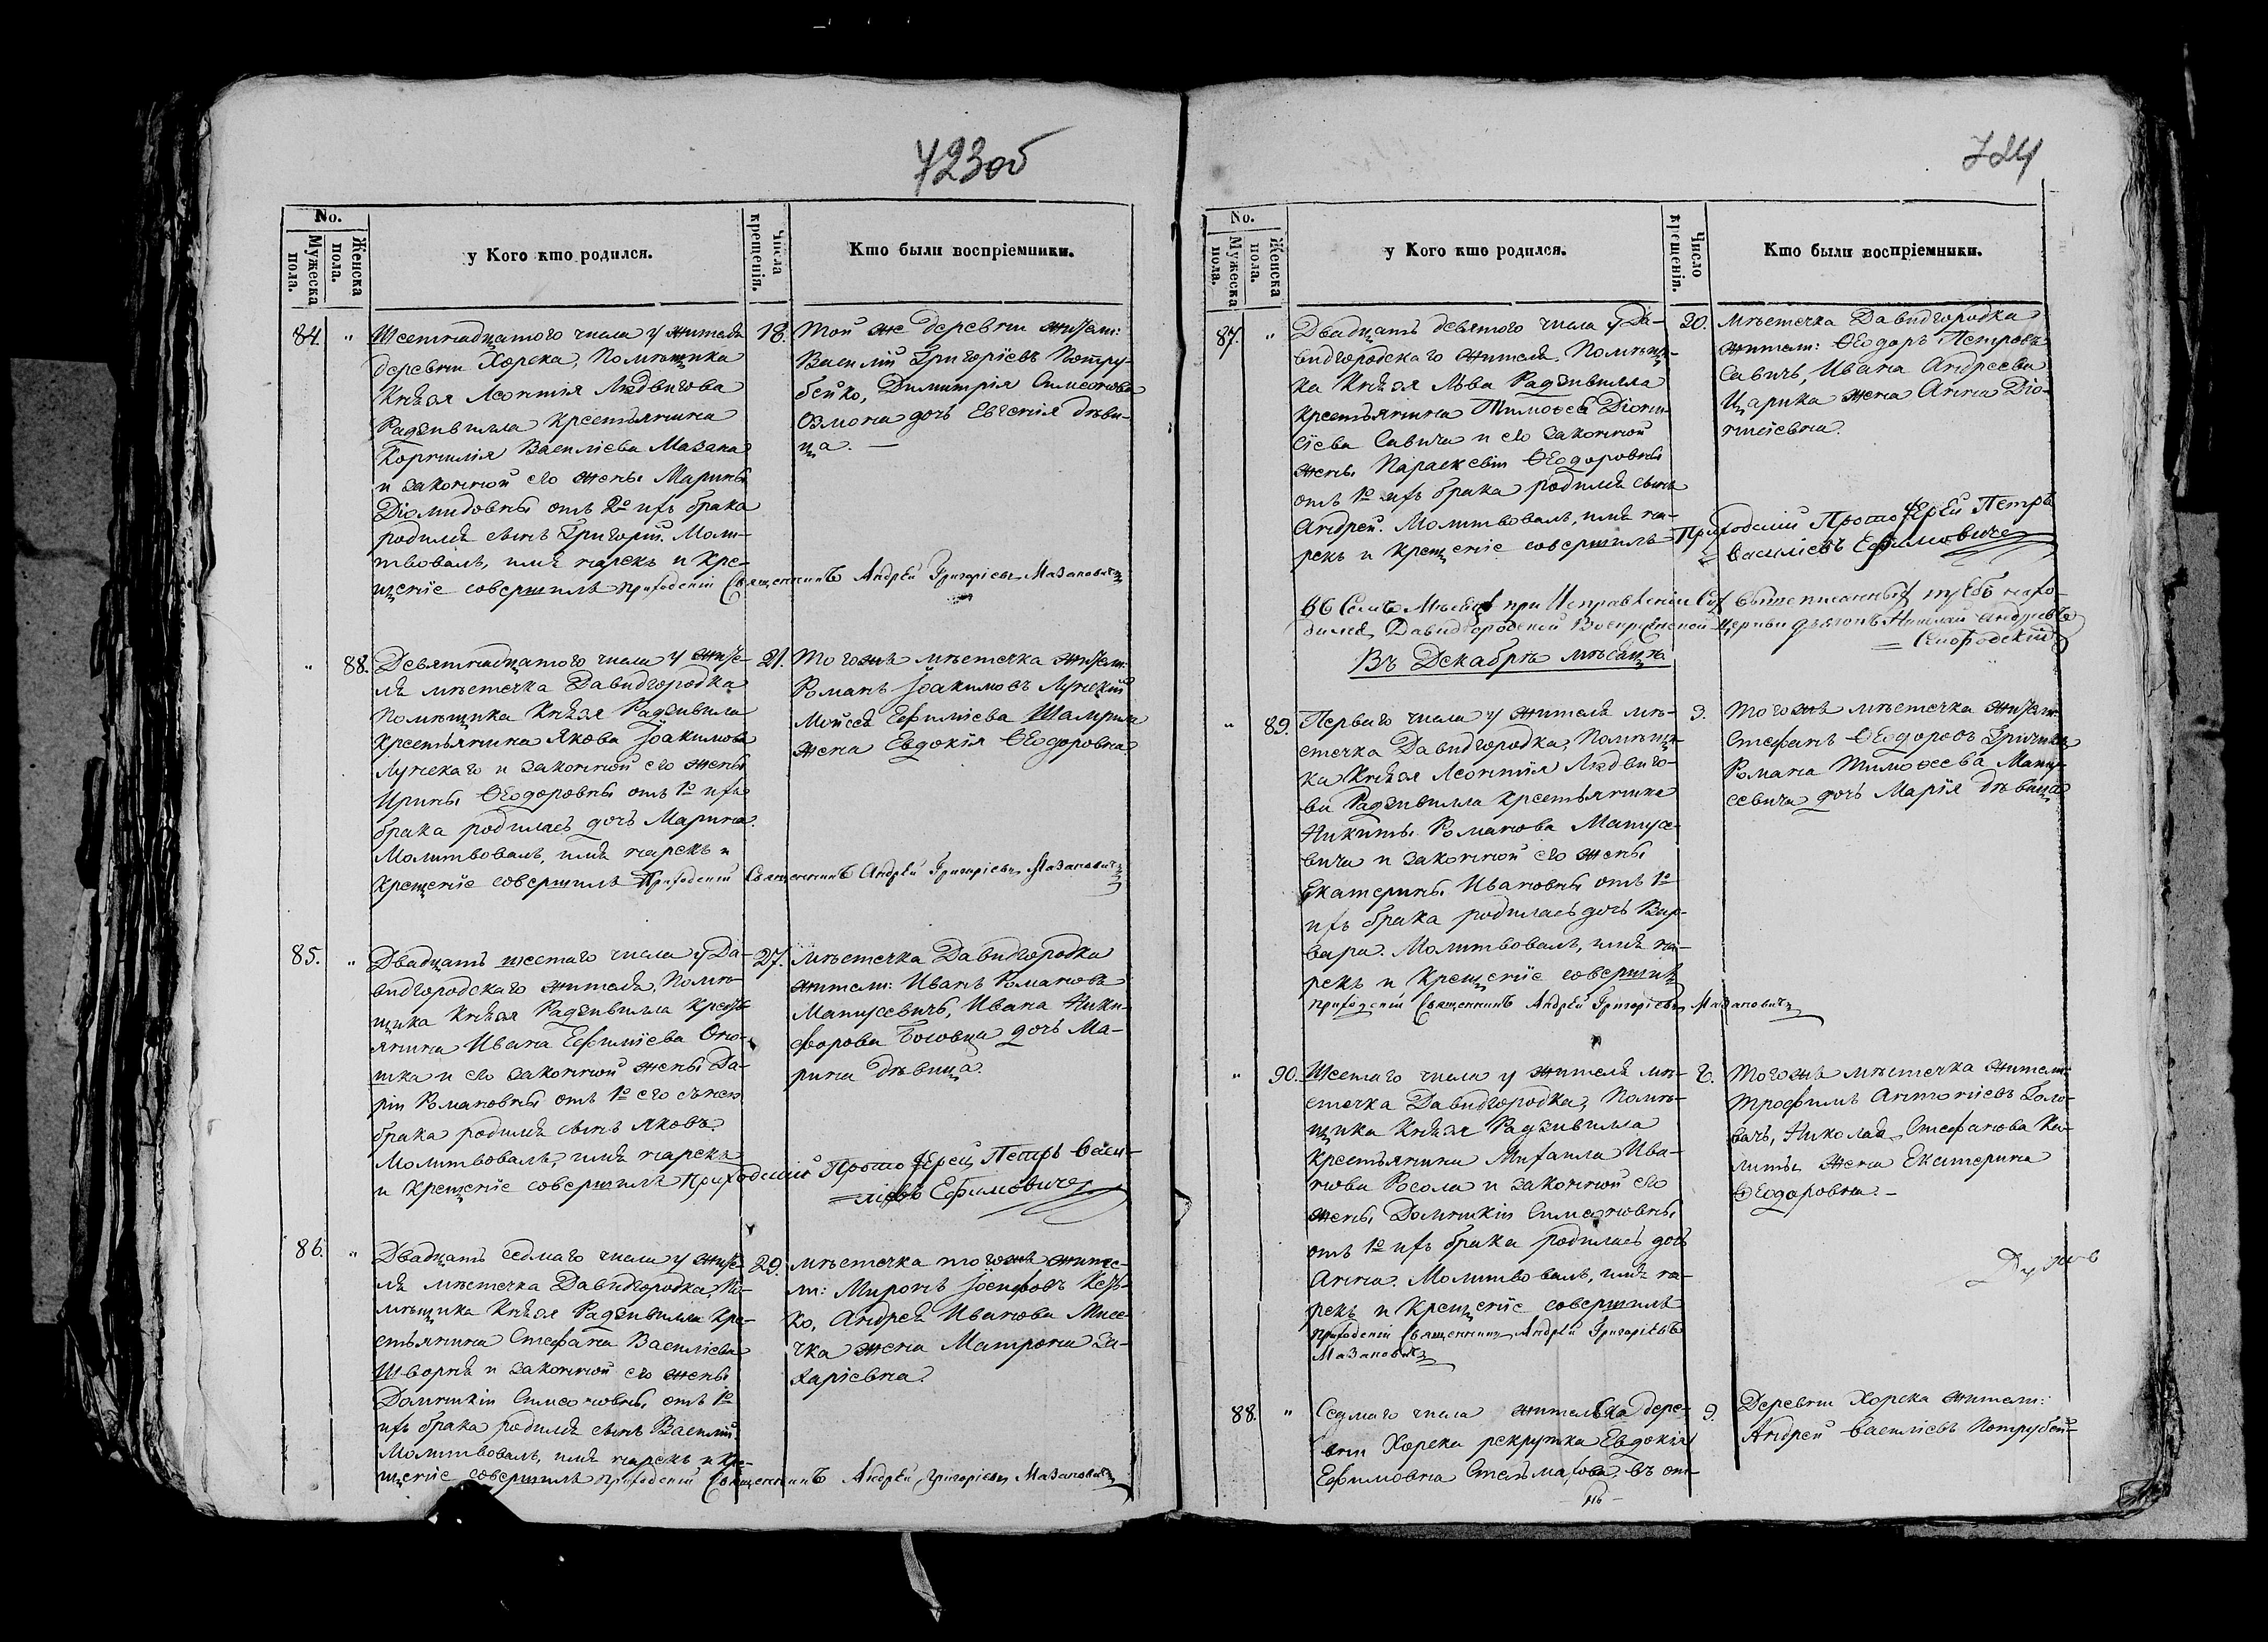 723об
No.
Мужеска пола.
Женска пола.
у Кого кто родился.
Числа крещенія.
Кто были воспріемники.
84. "
Шестнадцатого числа у жителя
деревни Хорска, Помѣщика
Князя Леонтія Людвигова
Радзивилла Крестьянина
Корнилія Василіева Мазана
и законной его жены Марины
Діомидовны отъ 2º ихъ брака
родился сынъ Григорій. Моли-
твовалъ, имя нарекъ и Кре-
щеніе совершилъ Приходскій Священникъ Андрей Григоріевъ Мазановичъ
18.
Той же деревни жители:
Василій Григоріевъ Потру-
бейко, Димитрія Симеонова
дочь Евгенія дѣви-
ца. —
" 88.
Девятнадцатого числа у жите-
ля мѣстечка Давидгородка
Помѣщика Князя Радзивила
Крестьянина Якова Іоакимова
Лунскаго и законной его жены
Ирины Ѳеодоровны отъ 1º ихъ
брака родилась дочь Марина.
Молитвовалъ, имя нарекъ и
Крещеніе совершилъ Приходскій Священникъ Андрей Григоріевъ Мазановичъ
21.
Того же мѣстечка жители:
Романъ Іоакимовъ Лунскій
Мойсея Ефиміева
жена Евдокія Ѳеодоровна
85. "
Двадцать шестаго числа у Да-
видгородскаго жителя, Помѣ-
щика Князя Радзивилла Кресть-
янина Ивана Ефиміева Оно-
шка и его законной жены Да-
ріи Романовны отъ 1º его съ нею
брака родился сынъ Яковъ.
Молитвовалъ, имя нарекъ
и Крещеніе совершилъ Приходскій Протоіерей Петръ Васи-
ліевъ Ефимовичъ
27.
Мѣстечка Давидгородка
жители: Иванъ Романовъ
Манусевичъ, Ивана Ники-
форова дочь Ма-
рина дѣвица.
86. "
Двадцать седмаго числа у жите-
ля мѣстечка Давидгородка, По-
мѣщика Князя Радзивилла Кре-
стьянина Стефана Василіева
Шворня и законной его жены
Домникіи Симеоновны отъ 1º
ихъ брака родился сынъ Василій.
Молитвовалъ, имя нарекъ и Кре-
щеніе совершилъ Приходскій Священникъ Андрей Григоріевъ Мазановичъ
29.
Мѣстечка того же жите-
ли: Миронъ Іосифовъ
Андрея Иванова
жена Матрона За-
харіевна.
724
No.
Мужеска пола.
Женска пола.
у Кого кто родился.
Число крещенія.
Кто были воспріемники.
87. "
Двадцать девятого числа у Да-
видгородскаго жителя, Помѣщи-
ка Князя Льва Радзивилла
Крестьянина Тимоѳея Діони-
сіева Савича и его законной
жены Параскевіи Ѳеодоровны
отъ 1º ихъ брака родился сынъ
Андрей. Молитвовалъ, имя на-
рекъ и Крещеніе совершилъ Приходскій Протоіерей Петръ
Василіевъ Ефимовичъ
30.
Мѣстечка Давидгородка
жители: Ѳеодоръ Петровъ
Савичъ, Ивана Андреева
Царика жена Анна Діо-
нисіевна.
Въ Семъ Мѣсяцѣ при Исправленіи Сихъ вышеписанныхъ требъ нахо-
дился Давидгородской Воскресенской Церкви дьяконъ Николай Андреевъ
Въ Декабрѣ мѣсяцѣ
" 89.
Перваго числа у жителя мѣ-
стечка Давидгородка, Помѣщи-
ка Князя Леонтія Людвиго-
ва Радзивилла Крестьянина
Никиты Романова Манусе-
вича и законной его жены
Екатерины Ивановны отъ 1º
ихъ брака родилась дочь Вар-
вара. Молитвовалъ, имя на-
рекъ и Крещеніе совершилъ
Приходскій Священникъ Андрей Григоріевъ Мазановичъ
3.
Того же мѣстечка жители:
Стефанъ Ѳеодоровъ
Романа ТимоѳееваМану-
севича дочь Марія дѣвица
" 90.
Шестаго числа у жителя мѣ-
стечка Давидгородка, Помѣ-
щика Князя Радзивилла
Крестьянина Михаила Ива-
нова Росола и законной его
жены Домникіи Симеоновны
отъ 1º ихъ брака родилась дочь
Анна. Молитвовалъ, имя на-
рекъ и Крещеніе совершилъ
Приходскій Священникъ Андрей Григоріевъ
Мазановичъ
Того же мѣстечка жители:
Трофимъ Антоніевъ Голо-
вачъ, Николая Стефанова Ка-
литы жена Екатерина
Ѳеодоровна. —
88. "
Седмаго числа жителька дере-
вни Хорска рекрутка Евдокія
Ефимовна въ от-
9.
Деревни Хорска жители:
Андрей Василіевъ Потрубей-